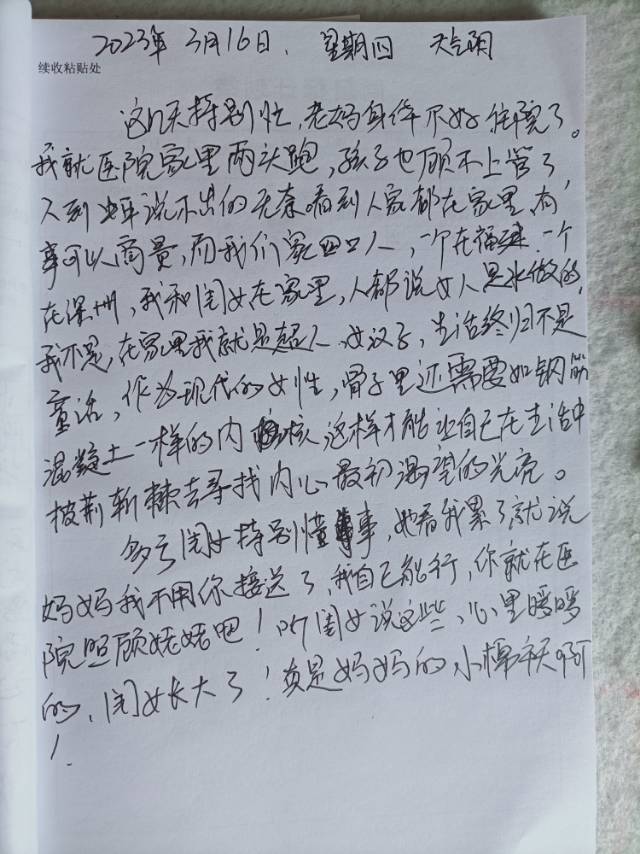 2023年3月16日. 星期四 天气阴
续收粘贴处
这几天特别忙,老妈身体不好住院了。
我就医院家里两头跑,孩子也顾不上管了,
人到中年说不出的无奈看到人家都在家里,有
事可以商量,而我们家四口人,一个在福建.一个
在深圳,我和闺女在家里,人都说女人是水做的,
我不是,在家里我就是超人.女汉子,生活终归不是
童话,作为现代的女性,骨子里还需要如钢筋
混凝土一样的内核这样才能让自己在生活中
披荆斩棘去寻找内心最初渴望的光亮。
多亏闺女特别懂事,她看我累了就说
妈妈我不用你接送了,我自己能行,你就在医
院照顾姥姥吧!听闺女说这些,心里暖暖
的,闺女长大了!真是妈妈的小棉袄啊
!